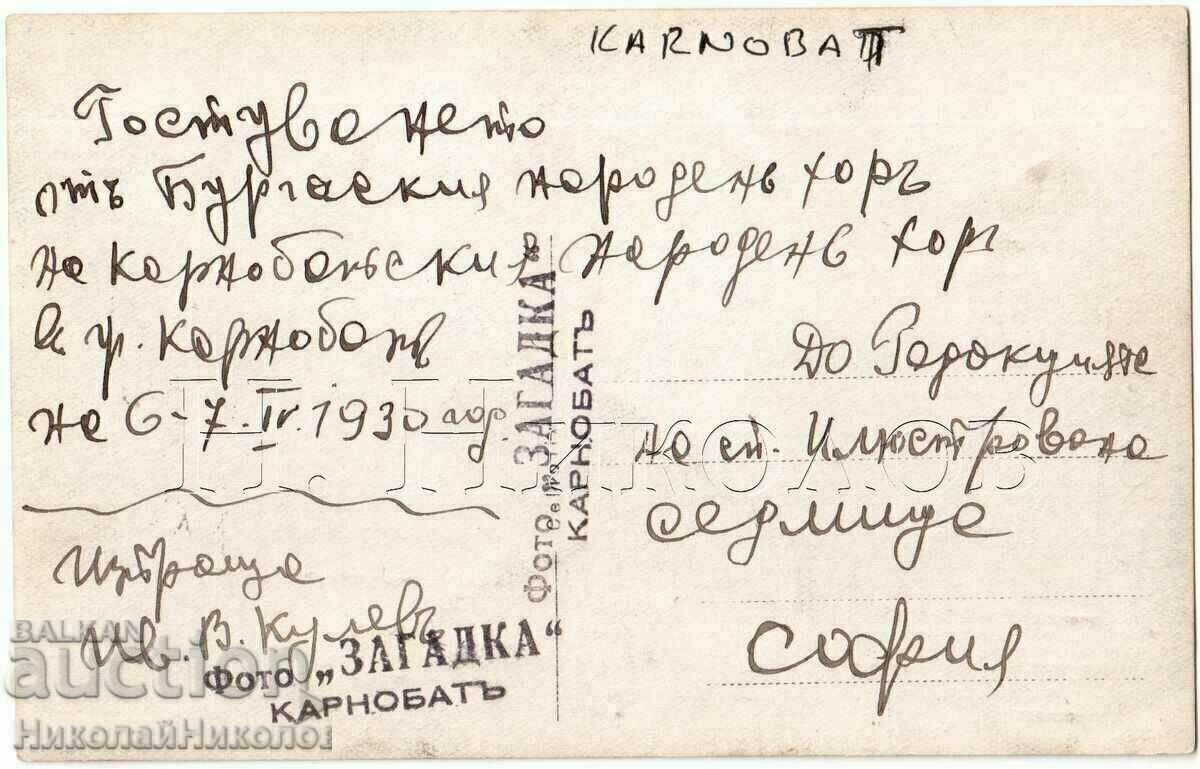 КАRNОВАТ
Гостуването
отъ Бургаския народенъ хоръ
на Карнобатския народенъ хор
в гр. Карнобатъ
на 6-7.IV.1930 год.
Изпраща
Ив. В. Кулевъ
До Редакцията
на сп. Илюстрована
седмица
София
Фото „ЗАГАДКА“
КАРНОБАТЪ
Фото „ЗАГАДКА“
КАРНОБАТЪ
Н. НИКОЛОВ
BALKAN
auction
НиколайНиколов